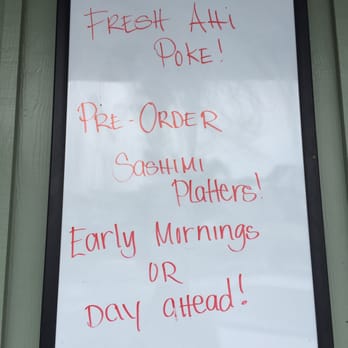 FRESH AHi
POKE!
PRE-ORDER
SASHIMI
PLAtteRS!
Early Mornings
OR
DAY aHead!